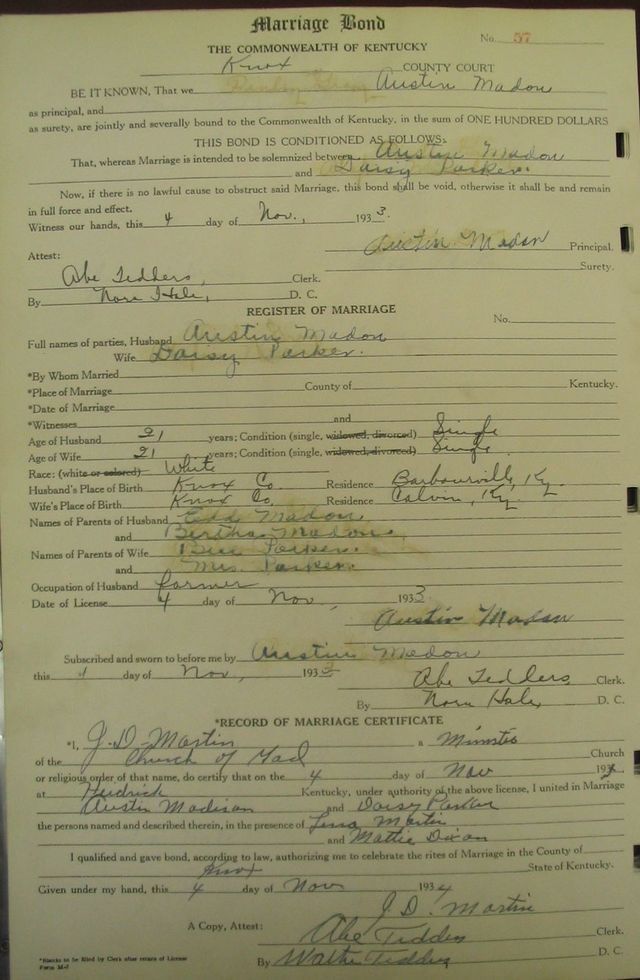 Marriage Bond
No. 57
THE COMMONWEALTH OF KENTUCKY
Knox COUNTY COURT
BE IT KNOWN, That we Austin Madon
as principal, and
as surety, are jointly and severally bound to the Commonwealth of Kentucky, in the sum of ONE HUNDRED DOLLARS
THIS BOND IS CONDITIONED AS FOLLOWS:
That, whereas Marriage is intended to be solemnized between Austin Madon
and Daisy Parker.
Now, if there is no lawful cause to obstruct said Marriage, this bond shall be void, otherwise it shall be and remain
in full force and effect.
Witness our hands, this 4 day of Nov., 1933.
Austin Madon Principal.
Attest: Surety.
Abe Tedders, Clerk.
By Nora Hale, D. C.
REGISTER OF MARRIAGE
No.
Full names of parties, Husband Austin Madon
Wife Daisy Parker.
*By Whom Married
*Place of Marriage County of Kentucky.
*Date of Marriage
*Witnesses and
Age of Husband 21 years; Condition (single, widowed, divorced) Single
Age of Wife 21 years; Condition (single, widowed, divorced) Single
Race: (white or colored) White
Husband's Place of Birth Knox Co. Residence Barbourville, Ky.
Wife's Place of Birth Knox Co. Residence Calvin, Ky.
Names of Parents of Husband Edd Madon
and Bertha Madon,
Names of Parents of Wife Parker.
and Mrs. Parker.
Occupation of Husband farmer
Date of License 4 day of Nov, 1933
Austin Madon
Subscribed and sworn to before me by Austin Madon
this 4 day of Nov, 1933
Abe Tedders Clerk.
By Nora Hale D. C.
*RECORD OF MARRIAGE CERTIFICATE
*I, J. D. Martin a Minster
of the Church of God Church
or religious order of that name, do certify that on the 4 day of Nov 193
at Hedrick Kentucky, under authority of the above license, I united in Marriage
Austin Madison and Daisy Parker
the persons named and described therein, in the presence of Martin
and Mattie Dixon
I qualified and gave bond, according to law, authorizing me to celebrate the rites of Marriage in the County of
Knox State of Kentucky.
Given under my hand, this 4 day of Nov 1934
J. D. Martin
A Copy, Attest: Abe Tedders Clerk.
By Walter Tedders D. C.
*Blanks to be filed by Clerk after return of License
Form M-1